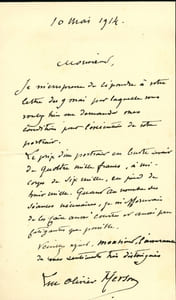 10 Mai 1914.
Monsieur,
Je m'empresse de répondre à votre
lettre du 9 mai par laquelle vous
voulez bien me demander mes
conditions pour l'exécution de votre
portrait.
Le prix d'un portrait en buste serait
de quatre mille francs, à mi-
corps de six mille, en pied de
huit mille. Quant au nombre des
séances nécessaires, je m'efforcerais
de les faire aussi courtes et aussi peu
fatigantes que possible.
Veuillez agréer, monsieur, l'assurance
de mes sentiments très distingués
Luc Olivier Merson